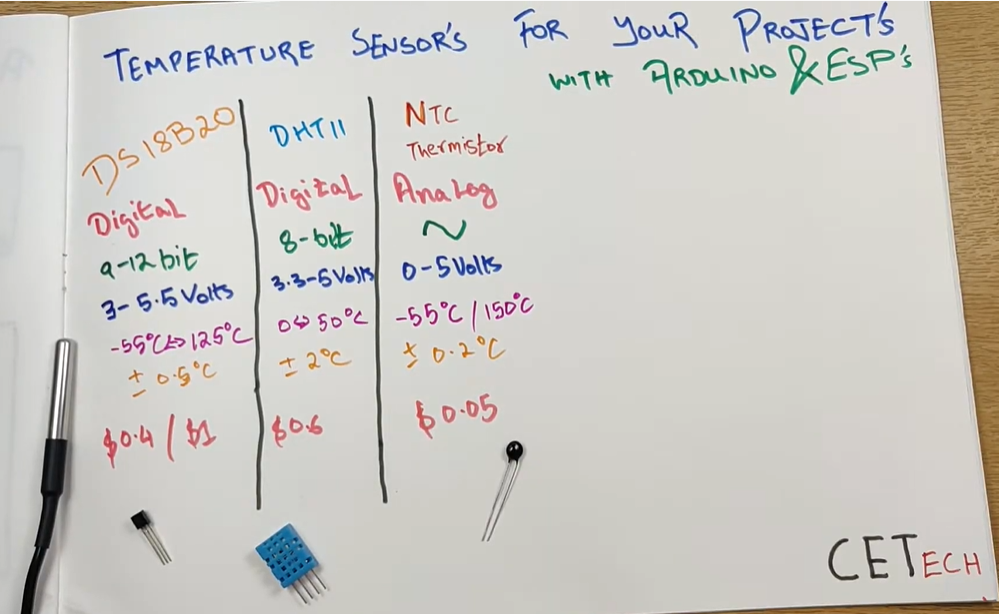 TEMPERATURE SENSOR'S FOR YOUR PROJECT'S
WITH ARDUINO & ESP's
DS18B20
Digital
9-12 bit
3-5.5 Volts
-55°C<->125°C
± 0.5°C
$0.4 / $1
DHT11
Digital
8-bit
3.3-5 Volts
0<->50°C
± 2°C
$0.6
NTC
Thermistor
Analog
~
0-5 Volts
-55°C / 150°C
± 0.2°C
$0.05
CETECH